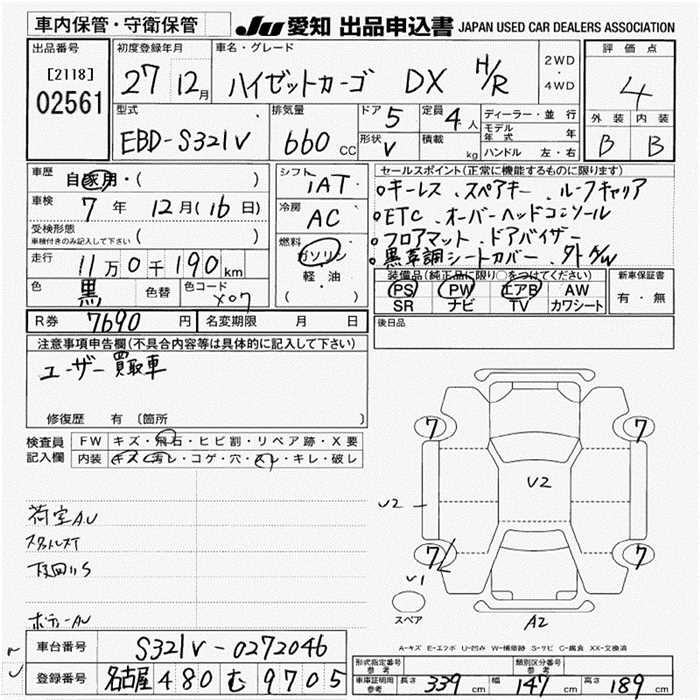 車内保管・守衛保管
JU 愛知 出品申込書 JAPAN USED CAR DEALERS ASSOCIATION
出品番号
[2118]
02561
初度登録年月
27 12月
車名・グレード
ハイゼットカーゴ DX H/R
2WD
・
4WD
評価点
4
外装 内装
B B
型式
EBD-S321V
排気量
660 CC
ドア 5
形状 V
定員 4人
積載 kg
ディーラー・並行
モデル年式 年
ハンドル 左・右
車歴 自家用・( )
車検 7年 12月(16日)
受検形態 ( )
車検付きのみ記入して下さい
走行 11万0千190km
色 黒 色替 色コード X07
R券 7690円 名変期限 月 日
シフト
IAT
冷房
AC
燃料
ガソリン
軽・油
( ・ )
セールスポイント(正常に機能するものに限ります)
・キーレス、スペアキー、ルーフキャリア
・ETC、オーバーヘッドコンソール
・フロアマット、ドアバイザー
・黒革調シートカバー、
装備品(純正品に限り○をつけてください)
PS PW エアB AW
SR ナビ TV カワシート
新車保証書
有・無
後日品
注意事項申告欄(不具合内容等は具体的に記入して下さい)
ユーザー買取車
修復歴 有 〔箇所 〕
検査員
記入欄
FW キズ・飛石・ヒビ割・リペア跡・X要
内装 キズ・汚レ・コゲ・穴・スレ・キレ・破レ
荷室AU
下回りS
ボデーAU
7
7
U2
U2
7
7
U1
スペア
A2
A-キズ E-エクボ U-凹み W-補修跡 S-サビ C-腐食 XX-交換済
車台番号 S321V-0272046
登録番号 名古屋 480 む 9705
形式指定番号
参考
類別区分番号
参考
車庫証明用
参考
長さ 339cm 幅 147cm 高さ 189cm